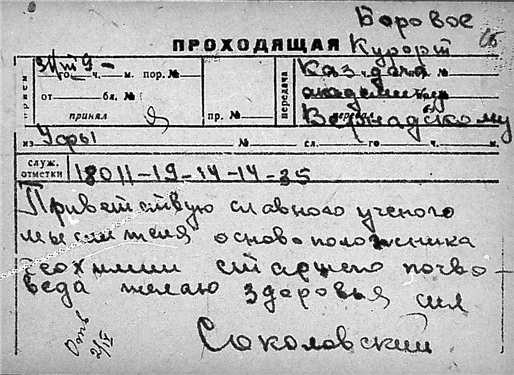 Боровое
ПРОХОДЯЩАЯ Курорт
31/III 9-
го ч. м. пор. №
Каз. дача
академику
Вернадскому
от бл. №
принял
прием
пр. №
передача
из Уфы № сл. го ч. м.
служ. отметки 18011-19-14-14-35
Приветствую славного ученого
мыслителя основоположника
геохимии старшего почво-
веда желаю здоровья сил
Соколовский
Отв
2/IV